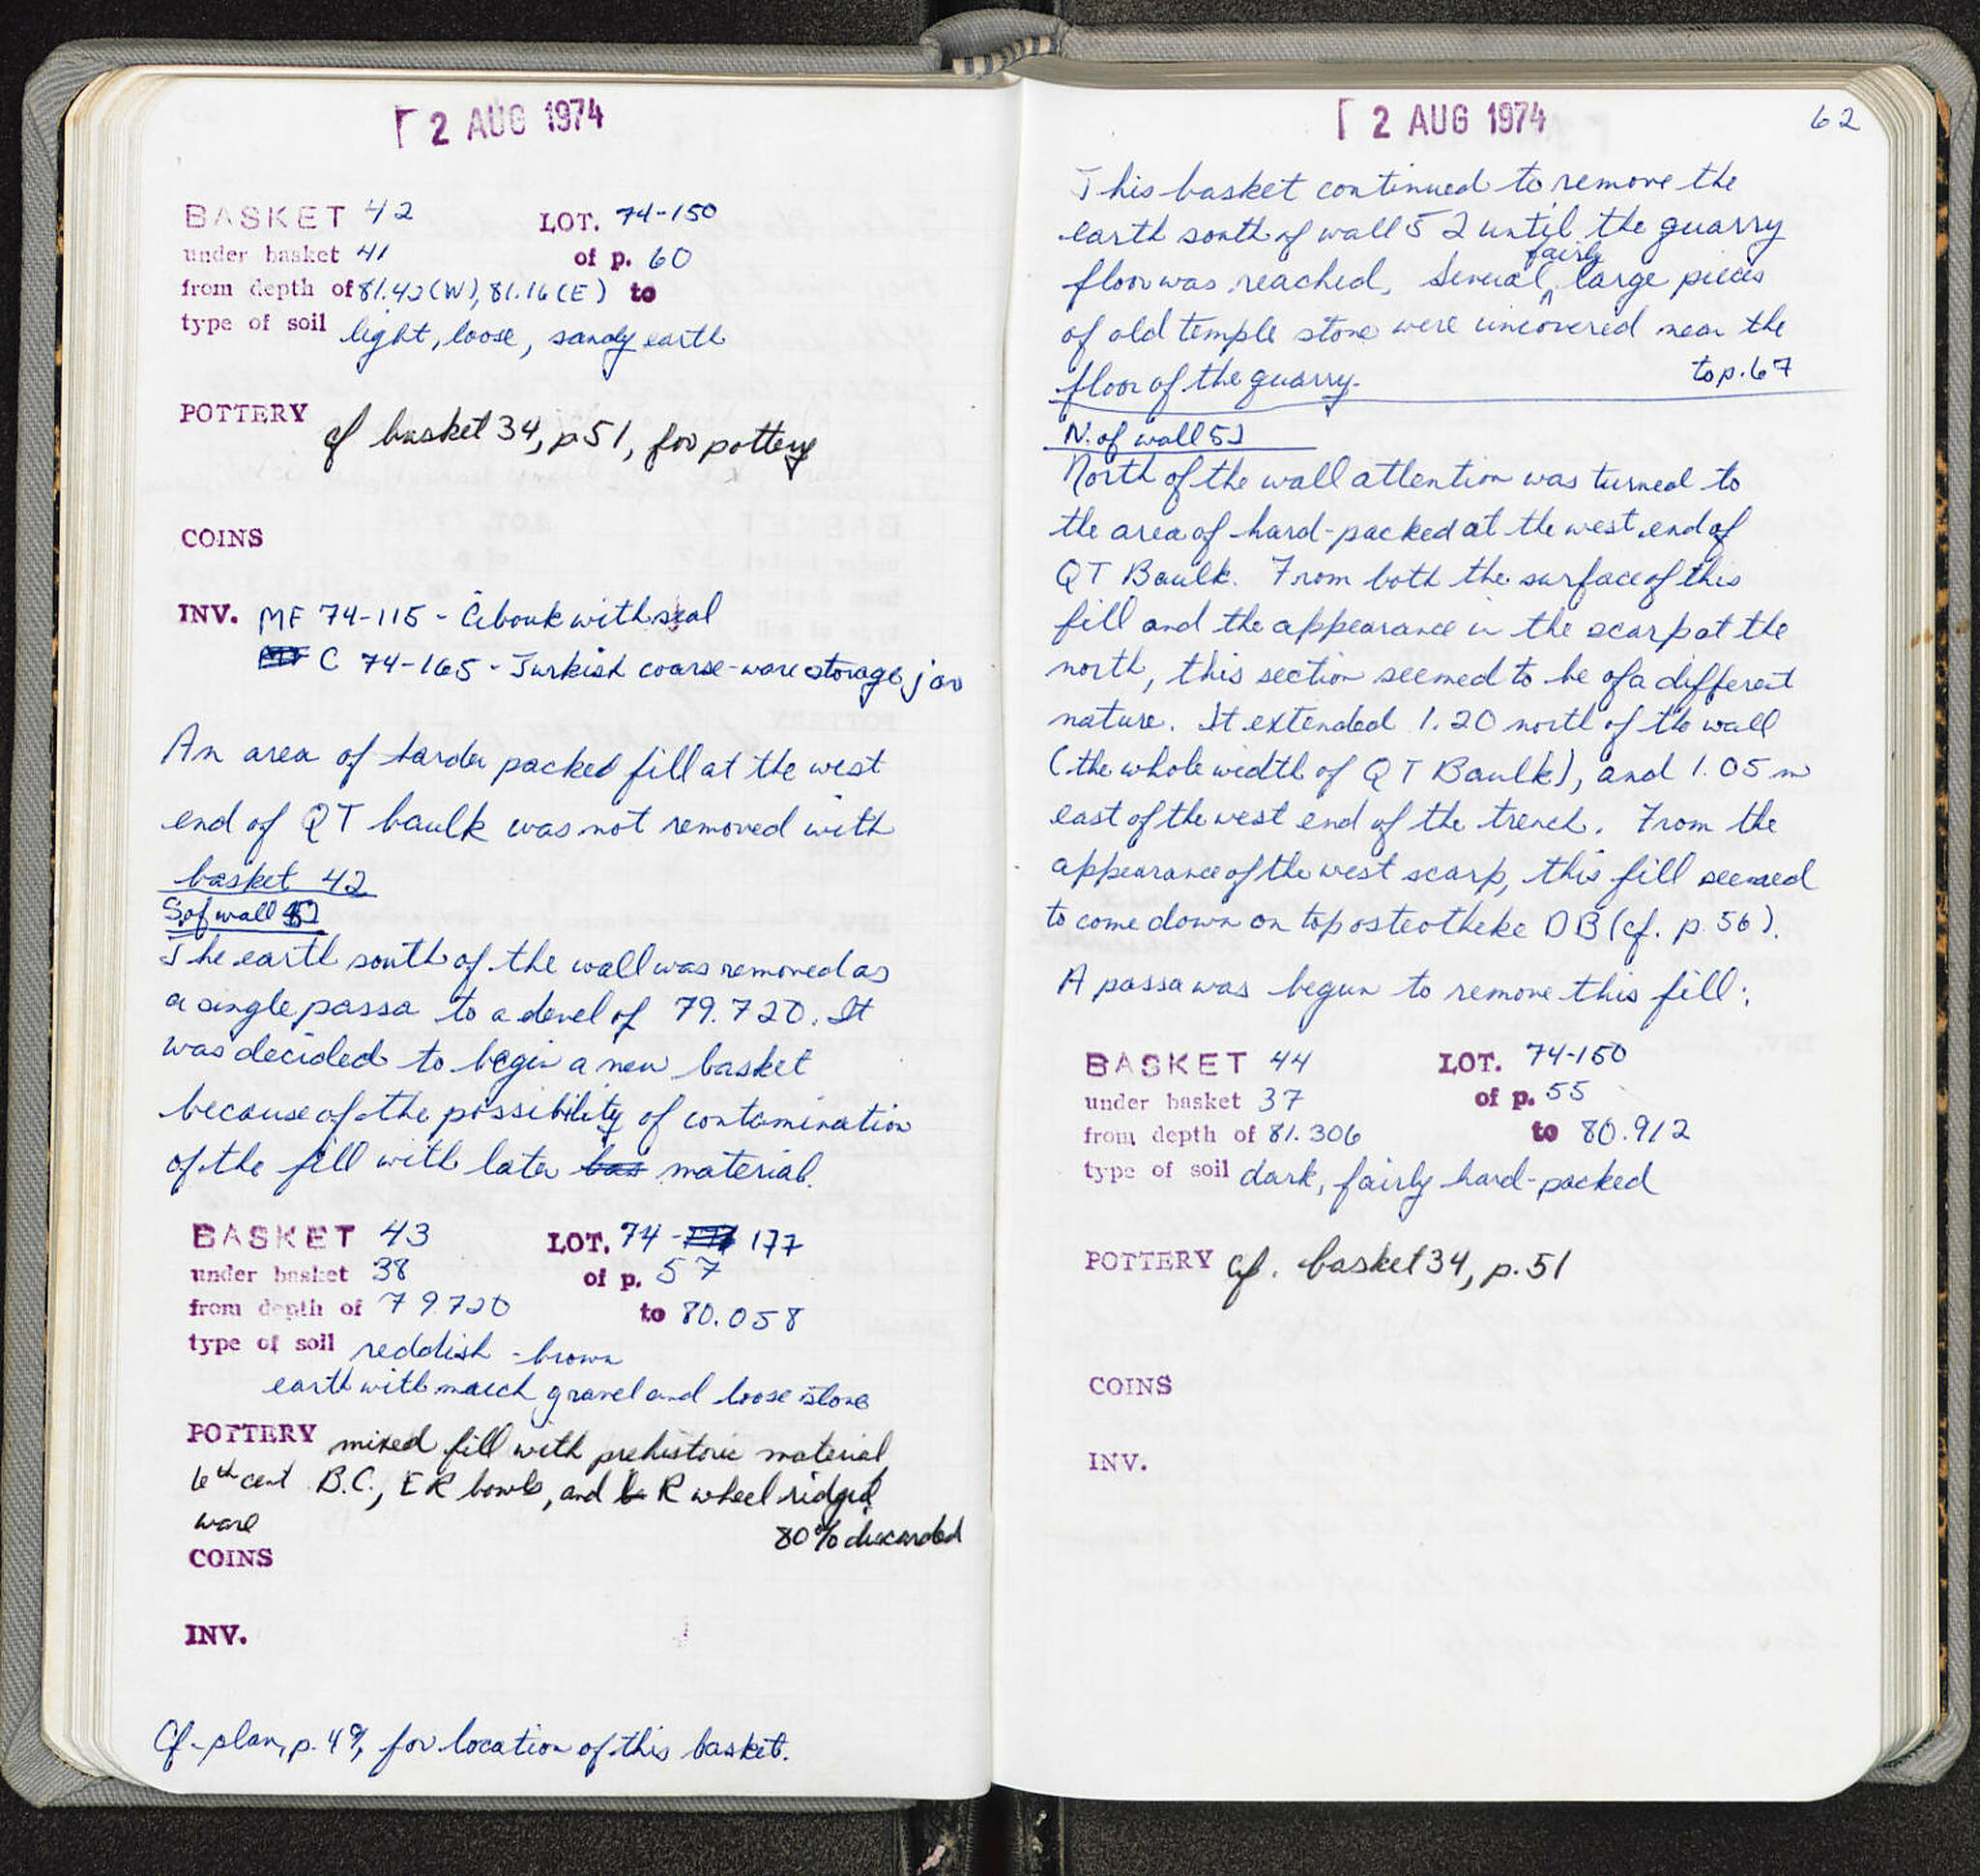 2 AUG 1974
BASKET 42 LOT. 74-150
under basket 41 of p. 60
from depth of 81.42(W), 81.16(E) to
type of soil light, loose, sandy earth
POTTERY cf basket 34, p 51, for pottery
COINS
INV. MF 74-115 - Cibouk with seal
C 74-165 - Turkish coarse-ware storage jar
An area of harder packed fill at the west
end of QT baulk was not removed with
basket 42
S of wall 52
The earth south of the wall was removed as
a single passa to a level of 79.720. It
was decided to begin a new basket
because of the possibility of contamination
of the fill with later bas material.
BASKET 43 LOT. 74- 177
under basket 38 of p. 57
from depth of 79.720 to 80.058
type of soil reddish-brown
earth with much gravel and loose stone
POTTERY mixed fill with prehistoric material,
6th cent B.C., ER bowls, and R wheel ridged
ware 80% discarded
COINS
INV.
Cf. plan, p. 49, for location of this basket.
2 AUG 1974 62
This basket continued to remove the
earth south of wall 52 until the quarry
fairly
floor was reached, Several large pieces
of old temple stone were uncovered near the
floor of the quarry. to p. 67
N. of wall 52
North of the wall attention was turned to
the area of hard-packed at the west end of
QT Baulk. From both the surface of this
fill and the appearance in the scarp at the
north, this section seemed to be of a different
nature. It extended 1.20 north of the wall
(the whole width of QT Baulk), and 1.05 m
east of the west end of the trench. From the
appearance of the west scarp, this fill seemed
to come down on top osteotheke DB (cf. p. 56).
A passa was begun to remove this fill:
BASKET 44 LOT. 74-150
under basket 37 of p. 55
from depth of 81.306 to 80.912
type of soil dark, fairly hard-packed
POTTERY cf. basket 34, p. 51
COINS
INV.